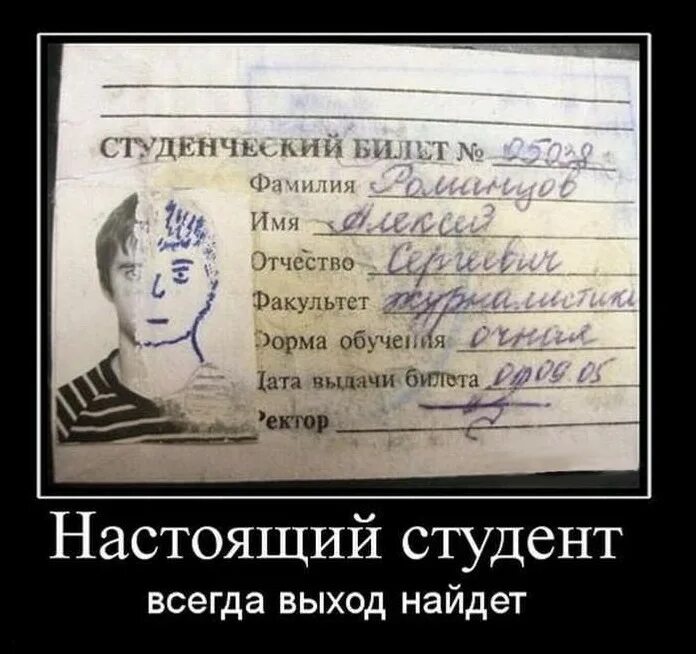 СТУДЕНЧЕСКИЙ БИЛЕТ № 05038
Фамилия Романцов
Имя Алексей
Отчество Сергеевич
Факультет журналистики
Форма обучения очная
Дата выдачи билета 01 09 05
Ректор
Настоящий студент
всегда выход найдет